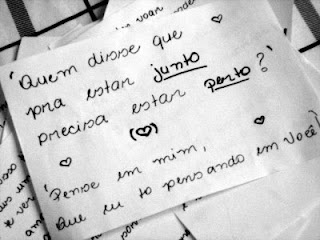 'Quem disse que
pra estar junto
precisa estar perto?'
'Pense em mim,
Que eu tô pensando em você!'